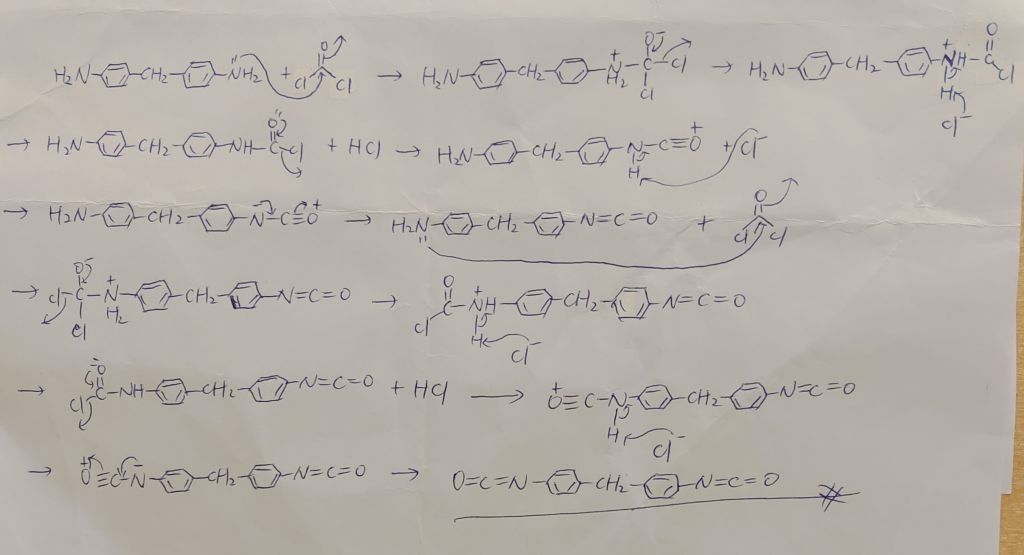 H₂N-⌬-CH₂-⌬-N̈H₂ + Cl-C(=O)-Cl → H₂N-⌬-CH₂-⌬-N⁺H₂-C(O⁻)(Cl)-Cl → H₂N-⌬-CH₂-⌬-N⁺H(H)-C(=O)-Cl Cl⁻
→ H₂N-⌬-CH₂-⌬-NH-C(=O)-Cl + HCl → H₂N-⌬-CH₂-⌬-N(H)-C≡O⁺ + Cl⁻
→ H₂N-⌬-CH₂-⌬-N⁻-C≡O⁺ → H₂N̈-⌬-CH₂-⌬-N=C=O + Cl-C(=O)-Cl
→ Cl-C(O⁻)(Cl)-N⁺H₂-⌬-CH₂-⌬-N=C=O → Cl-C(=O)-N⁺H(H)-⌬-CH₂-⌬-N=C=O Cl⁻
→ Cl-C(=O)-NH-⌬-CH₂-⌬-N=C=O + HCl → O⁺≡C-N(H)-⌬-CH₂-⌬-N=C=O Cl⁻
→ O⁺≡C-N⁻-⌬-CH₂-⌬-N=C=O → O=C=N-⌬-CH₂-⌬-N=C=O